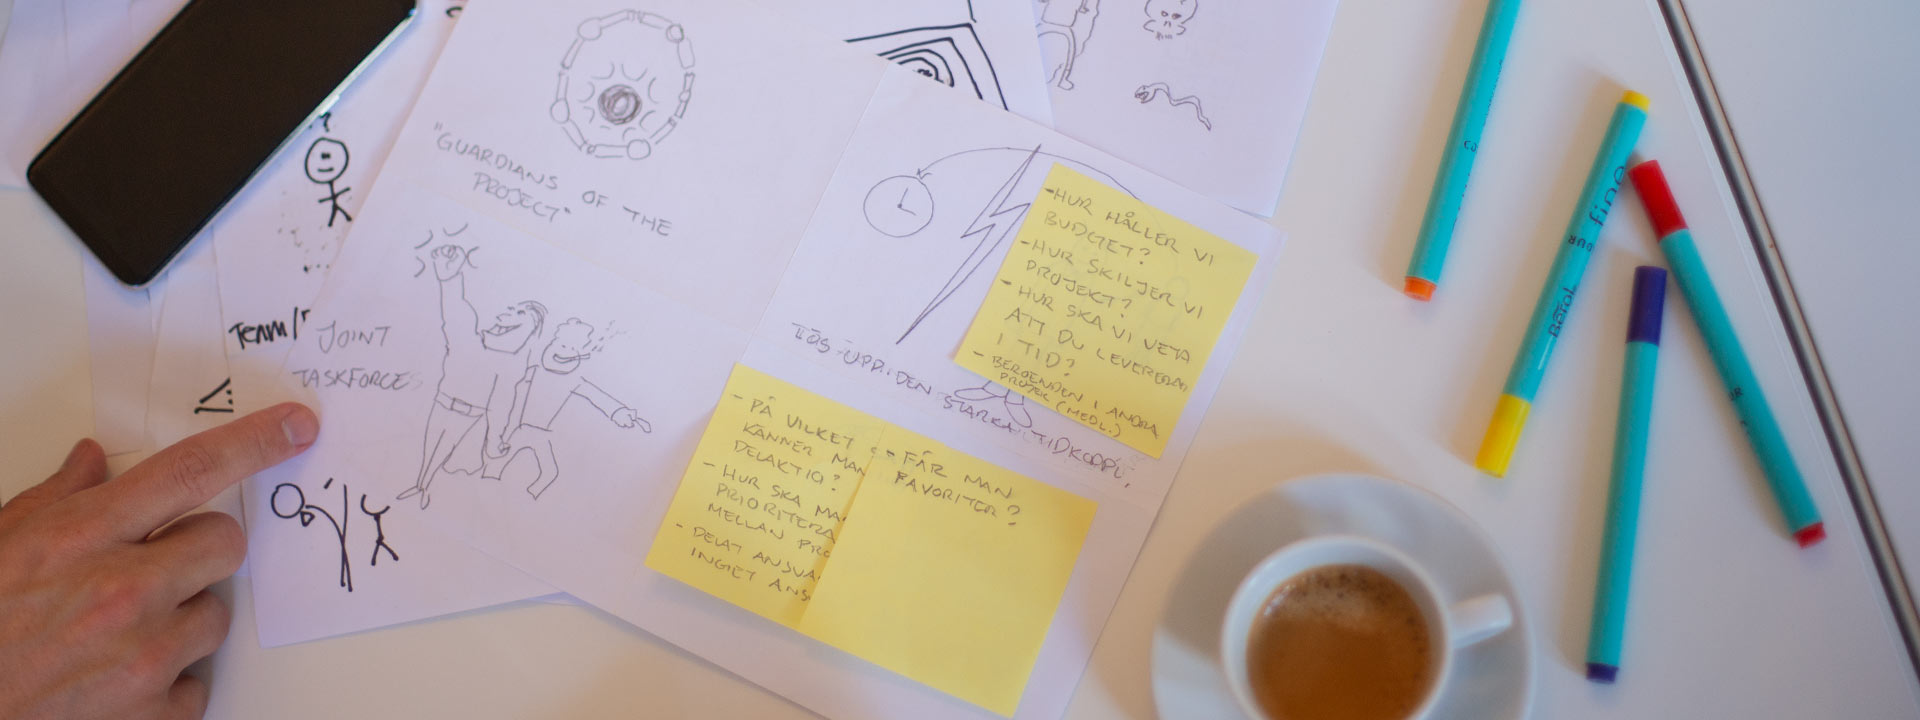 "GUARDIANS OF THE
PROJECT"
TEAM/
JOINT
TASKFORCE
LÖS UPP DEN STARKA TIDKOPPL.
- HUR HÅLLER VI
BUDGET?
- HUR SKILJER VI
PROJEKT?
- HUR SKA VI VETA
ATT DU LEVERERAR
I TID?
- BEROENDEN I ANDRA
PROJEK (MEDL.)
- PÅ VILKET
KÄNNER MAN
DELAKTIG?
- HUR SKA MA
PRIORITERA
MELLAN PRO
- DELAT ANSVA
INGET ANS
- FÅR MAN
FAVORITER?
Berol
fine